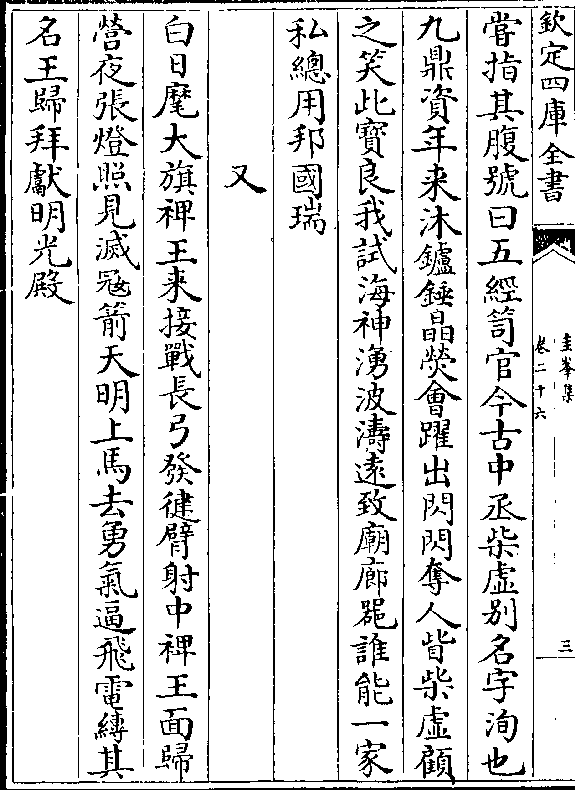 欽定四庫全書
圭峯集
卷二十六
三
嘗指其腹號曰五經笥官今古中丞柴虛别名字洵也
九鼎資年来沐鑪錘晶熒會躍出閃閃奪人眥柴虛顧
之笑此寶良我試海神湧波濤逺致廟廊器誰能一家
私總用邦國瑞
又
白日麾大旗裨王来接戰長弓發健臂射中裨王面歸
營夜張燈照見滅宼箭天明上馬去勇氣逼飛電縳其
名王歸拜獻明光殿